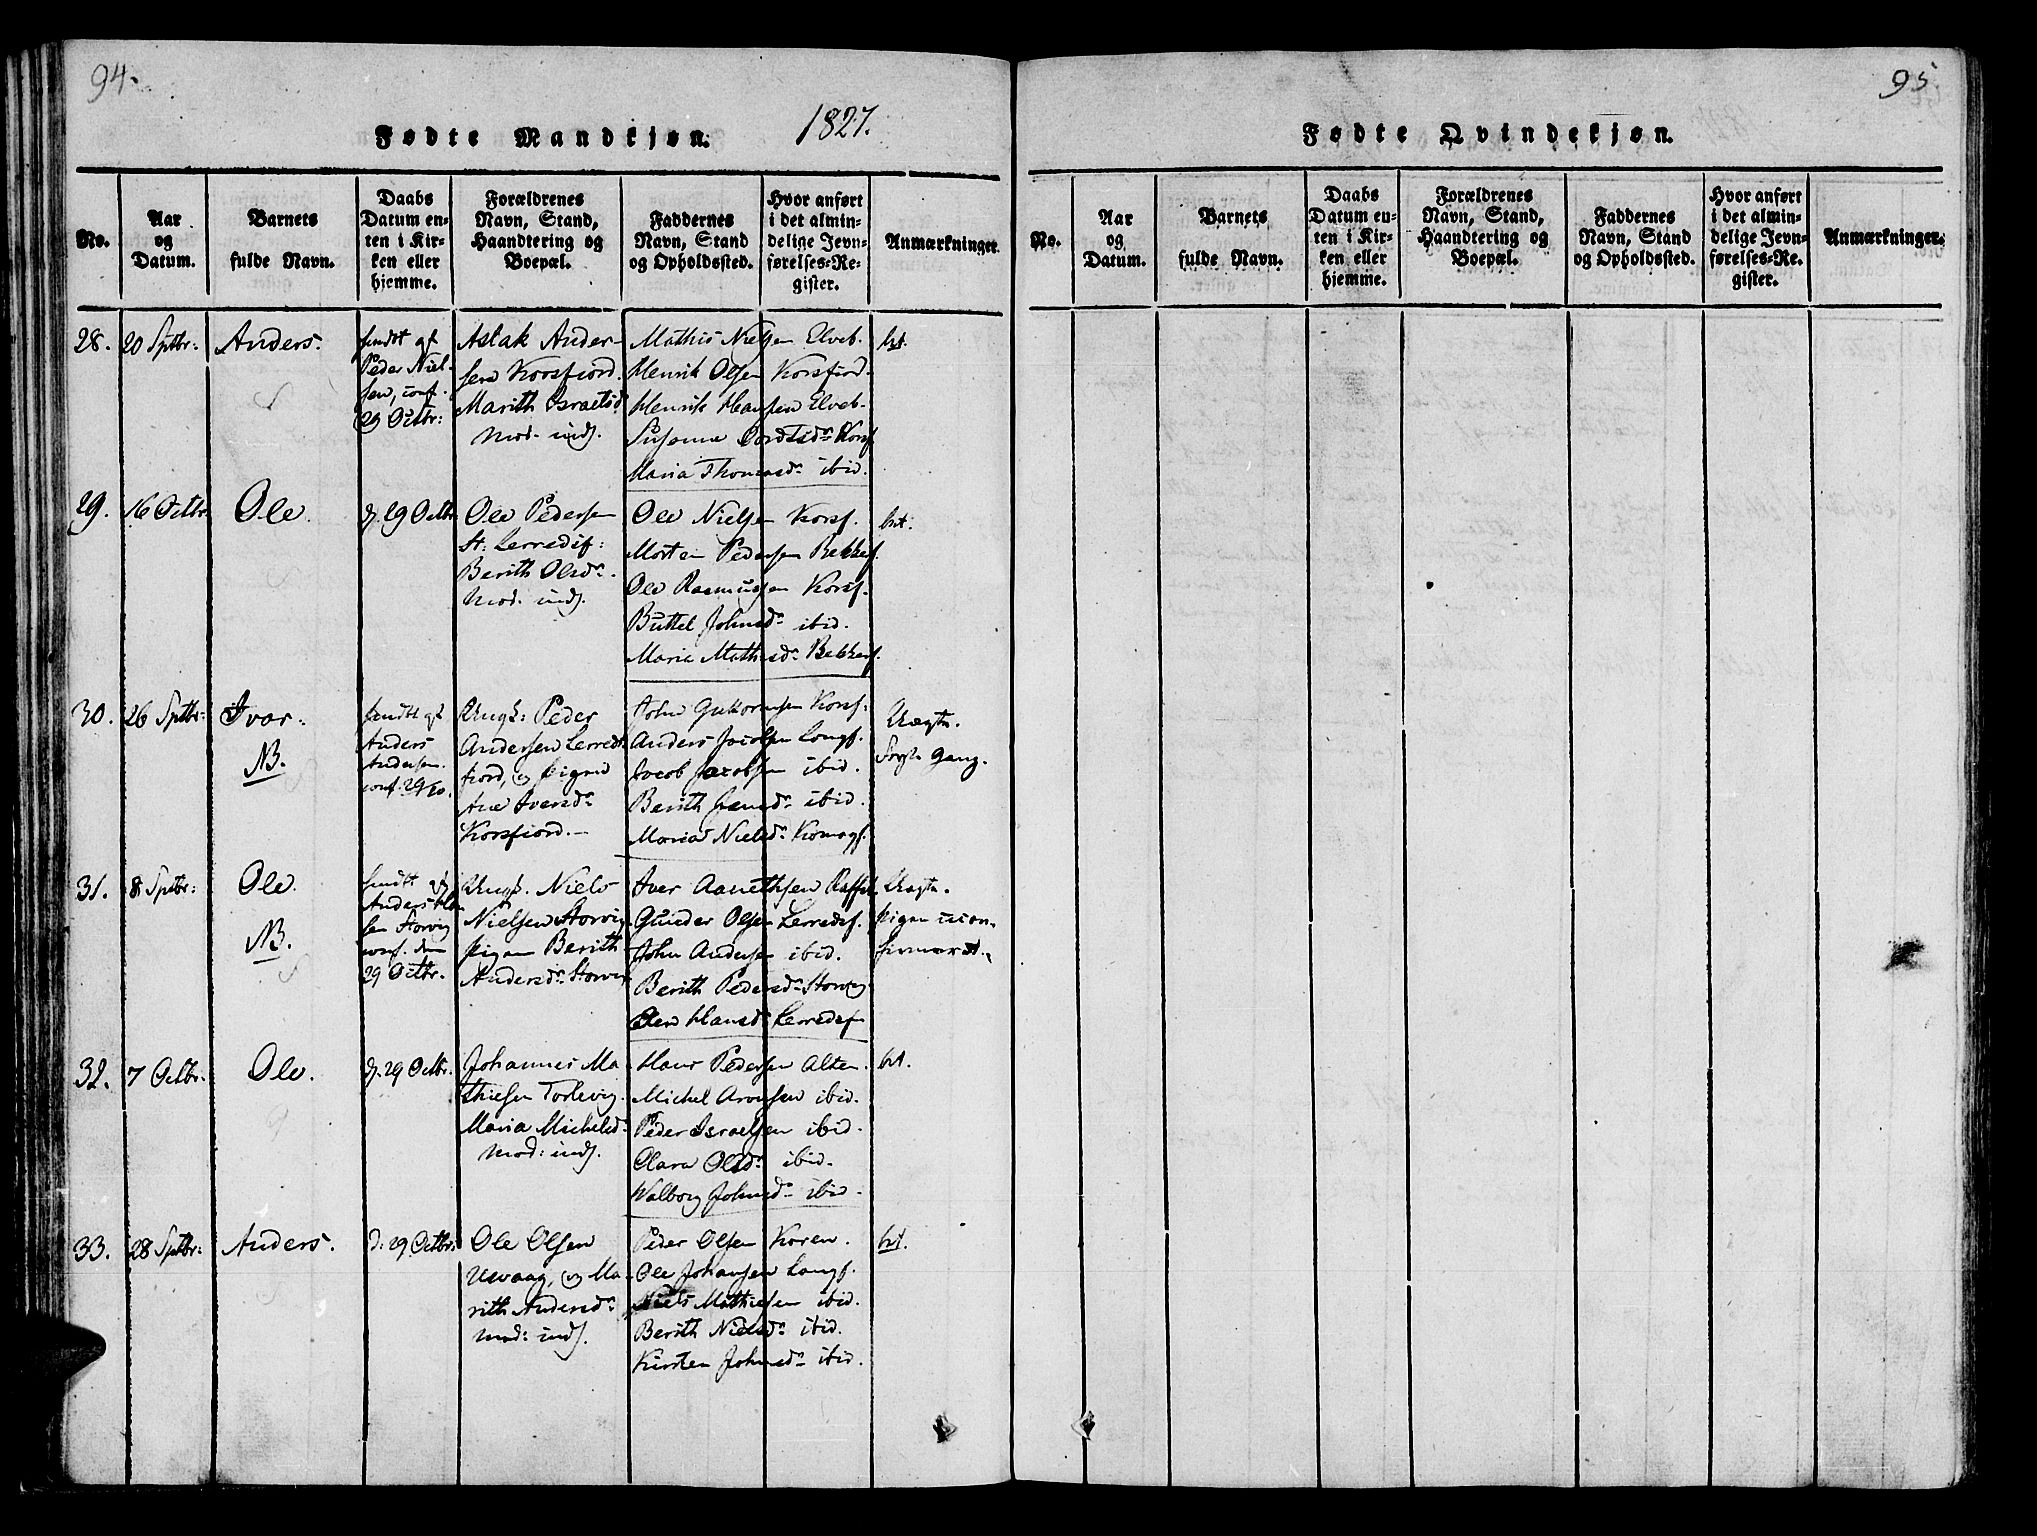 94.
1827.
Fødte Mandkjøn.
No.
Aar og Datum.
Barnets fulde Navn.
Daabs Datum enten i Kirken eller hjemme.
Forældrenes Navn, Stand, Haandtering og Boepæl.
Faddernes Navn, Stand og Opholdssted.
Hvor anført i det almindelige Jevnførelses-Register.
Anmærkninger.
28.
20 Sptbr:
Anders.
Peder Niel-
sen, conf.
29 Octbr:
Aslak Ander-
sen Korsfiord.
Marith Israelsd
mod. inds.
Mathis Nielsen Elveb.
Henrik Olsen Korsfiord.
Henrik Hansen Elveb.
Susanna Cordtsdr Korsf.
Maria Thomasdr ibid.
29.
16 Octbr.
Ole.
d. 29 Octbr
Ole Pedersen
St: Lerredsf:
Berith Olsdr.
mod. inds.
Ole Nielsen Korsf.
Morten Pedersen Bekkef.
Ole Rasmussen Korsf.
Buttel Johnsdr ibid.
Maria Mathisdr Bekkerf.
30.
26 Sptbr:
Ivar.
NB.
Anders
Andersen
conf. 29/10.
Ungk: Peder
Andersen Lerreds-
fiord, og pigen
Ane Iversdr
Korsfiord.
John Gukormsen Korsf:
Anders Jacobsen Langf.
Jacob Jacobsen ibid.
Berith Hansdr ibid.
Maria Nielsdr Komagf.
Uægte.
første Gang.
31.
8 Sptbr:
Ole.
NB.
Anders Han
sen Storvig
conf. den
29 Octbr.
Ungk. Niels
Nielsen Storvig
pigen Berith
Andersdr Storvig
Iver Aanethsen Raffsb.
Gunder Olsen Lerredsf.
John Andersen ibid.
Berith Pedersdr Storvig
Elen Hansdr Lerredsf
Uægte.
pigen ucon-
firmeret.
32.
7 Octbr.
Ole.
d. 29 Octbr.
Johannes Ma
thiesen Torkevig.
Maria Michelsd.
mod: inds.
Hans Pedersen Alten.
Michel Aronsen ibid.
Peder Israelsen ibid.
Clara Olsdr ibid.
Walborg Johnsdr ibid.
33.
28 Sptbr:
Anders.
d: 29 Octbr.
Ole Olsen
Uevaag, og Ma-
rith Andersdr
mod: inds.
Peder Olsen Koren.
Ole Johansen Langf.
Niels Mathiesen ibid.
Berith Nielsdr ibid.
Kirsten Johnsdr ibid.
95
Fødte Qvindekjøn.
No.
Aar og Datum.
Barnets fulde Navn.
Daabs Datum enten i Kirken eller hjemme.
Forældrenes Navn, Stand, Haandtering og Boepæl.
Faddernes Navn, Stand og Opholdssted.
Hvor anført i det almindelige Jevnførelses-Register.
Anmærkninger.